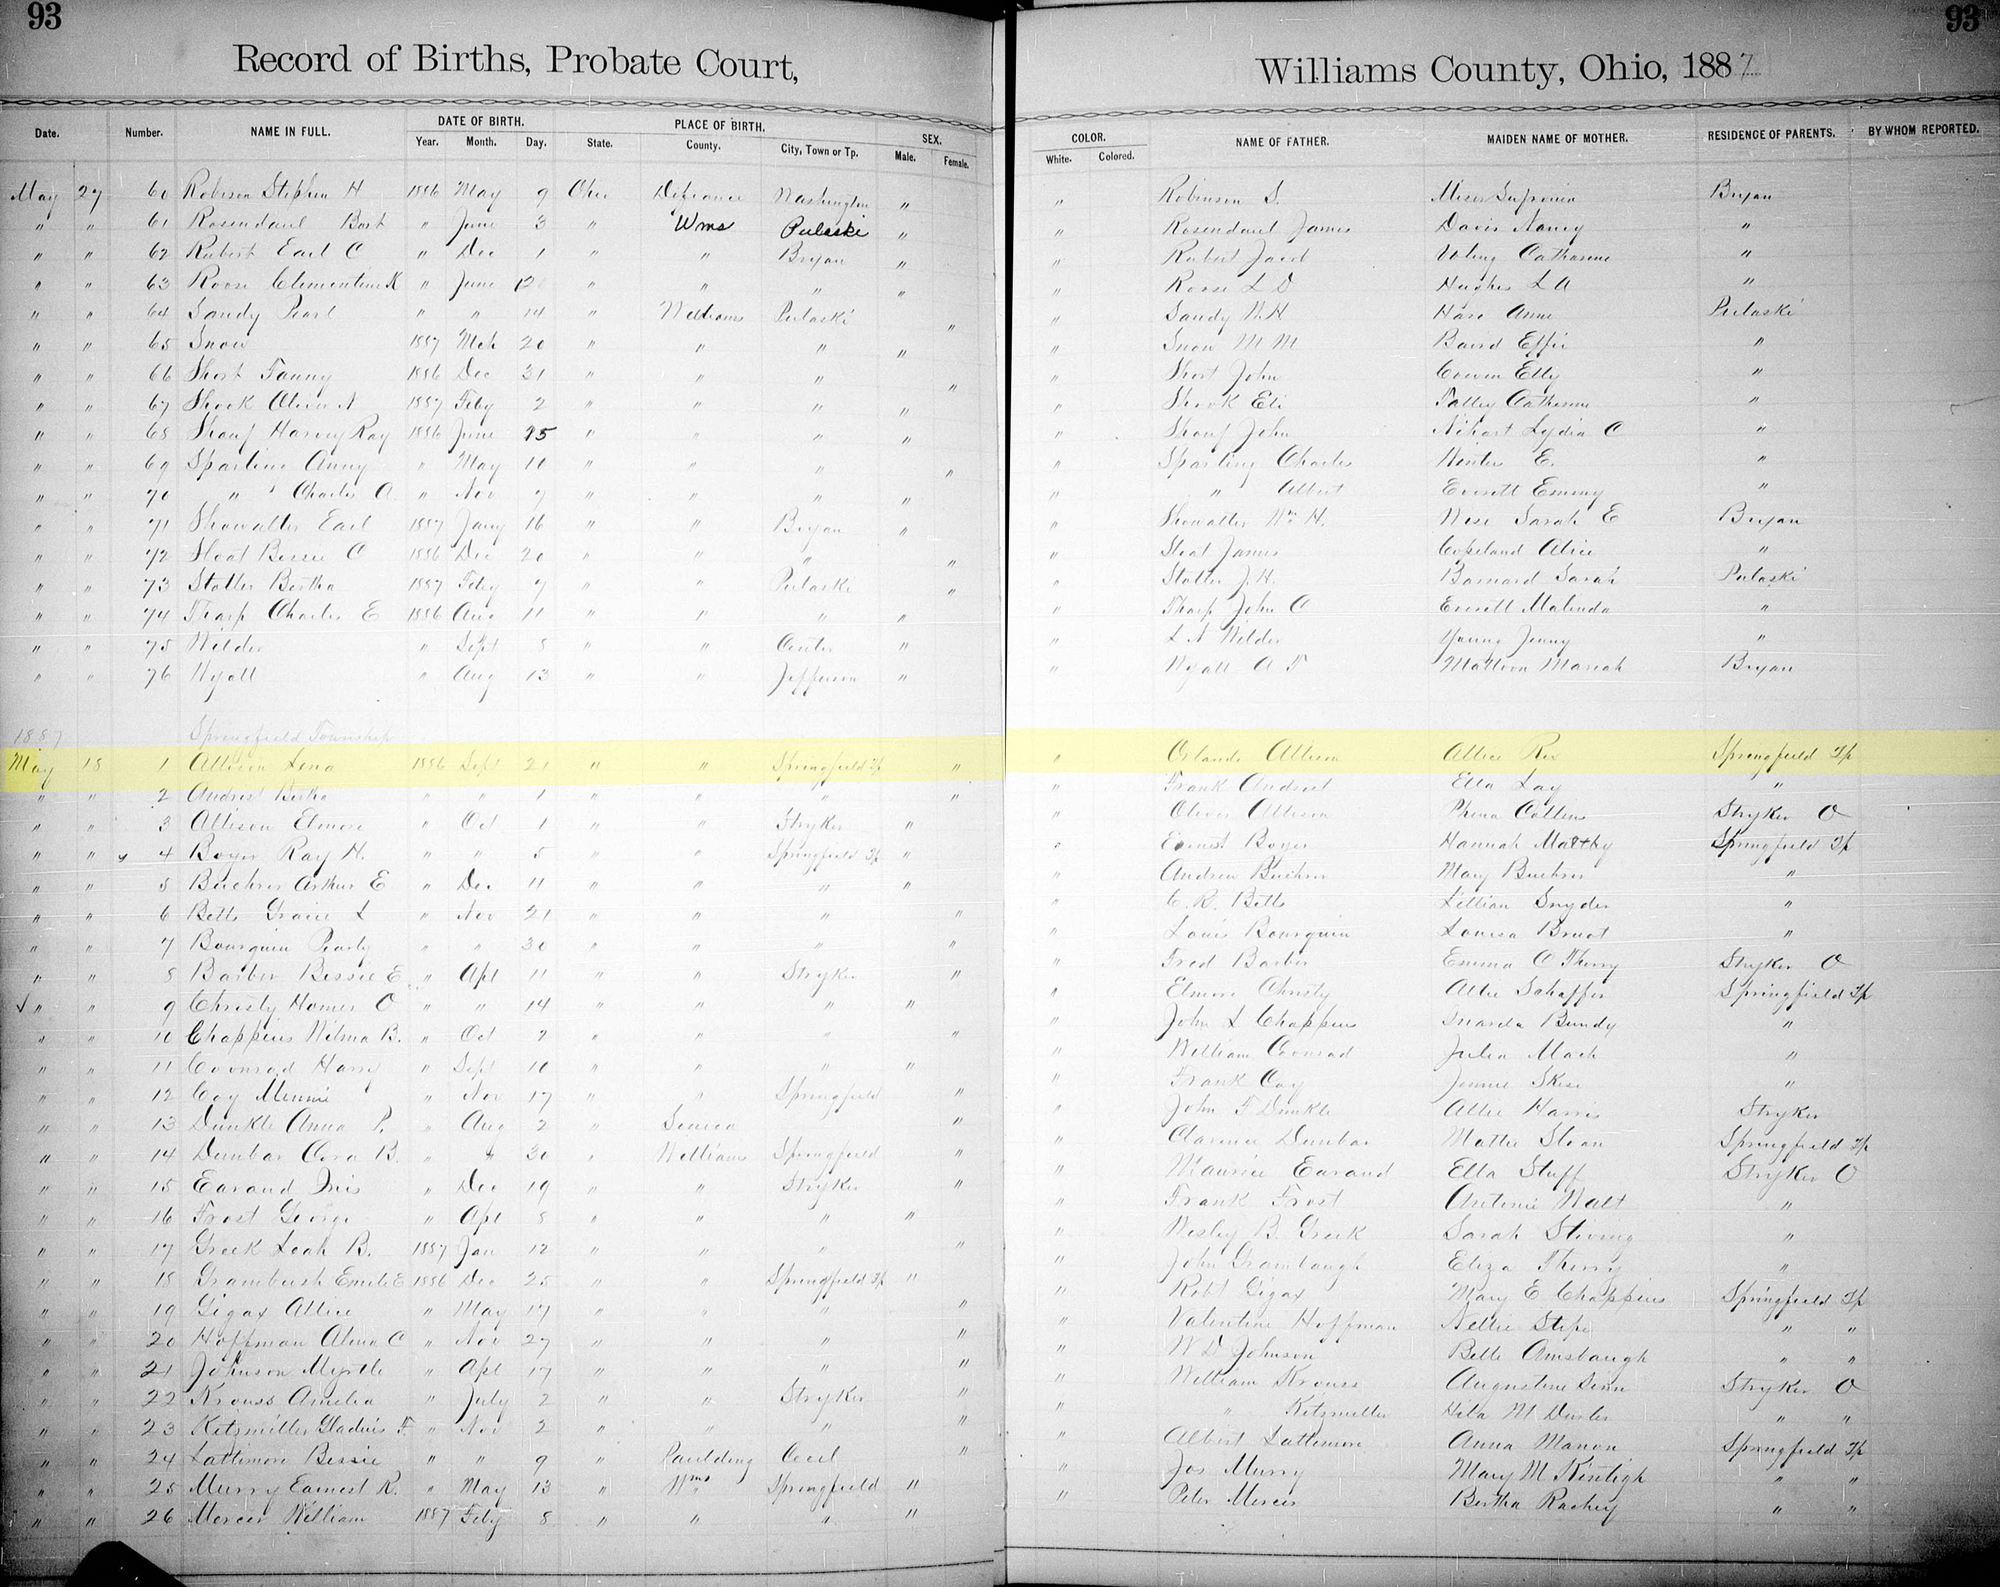 93 93
Record of Births, Probate Court, Williams County, Ohio, 1887
Date. Number. NAME IN FULL. DATE OF BIRTH. PLACE OF BIRTH. SEX. COLOR. NAME OF FATHER. MAIDEN NAME OF MOTHER. RESIDENCE OF PARENTS. BY WHOM REPORTED.
Year. Month. Day. State. County. City, Town or Tp. Male. Female. White. Colored.
May 27 60 Robison Stephen H 1886 May 9 Ohio Defiance Washington " " Robinson S. Miser Bryan
" " 61 Rosendaul Bart " June 3 " Wms Pulaski " " Rosendaul James Davis Nancy "
" " 62 Rubert Earl C " Dec 1 " " Bryan " " Rubert Jacob Catharine "
" " 63 Roose Clementine K " June 12 " " " " " Roose L D Hughes L A "
" " 64 Sandy Pearl " " 14 " Williams Pulaski " " Sandy W. H. Hare Anne Pulaski
" " 65 Snow 1887 Mch 20 " " " " " Snow M M Baird Effie "
" " 66 Short Fanny 1886 Dec 31 " " " " " Short John Cowen Elly "
" " 67 Shook Oliver A 1887 Feby 2 " " " " " Shook Eli Talley Catharine "
" " 68 Shouf Harvey Ray 1886 June 15 " " " " " Shouf John Nihart Lydia C "
" " 69 Sparling Anny " May 11 " " " " " Sparling Charles Winter E. "
" " 70 " Charles A. " Nov 7 " " " " " " Albert Everett Emmy "
" " 71 Showalter Earl 1887 Jany 16 " " Bryan " " Showalter Wm H. Wise Sarah E Bryan
" " 72 Sloat Bessie C 1886 Dec 20 " " " " " Sloat James Copeland Alice "
" " 73 Statler Bertha 1887 Feby 7 " " Pulaski " " Statler J. H. Barnard Sarah Pulaski
" " 74 Tharp Charles E 1886 Aug 11 " " " " " Tharp John C Everett Malinda "
" " 75 Wilder " Sept 8 " " Center " " L N Wilder Young Jenny "
" " 76 Wyatt " Aug 13 " " Jefferson " " Wyatt A F Mattoon Mariah Bryan
1887 Springfield Township
May 18 1 Allison Lena 1886 Sept 21 " " Springfield Tp " " Orlando Allison Allice Rix Springfield Tp
" " 2 Andrist Bertha " " 1 " " " " " Frank Andrist Ella Lay "
" " 3 Allison Elmore " Oct 1 " " Stryker " " Oliver Allison Phena Collins Stryker O
" " 4 Boyer Ray H. " " 5 " " Springfield Tp " " Ernest Boyer Hannah Matthy Springfield Tp
" " 5 Buehrer Arthur E " Dec 11 " " " " " Andrew Buehrer Mary Buehrer "
" " 6 Betts Gracie L " Nov 21 " " " " " C. R. Betts Lillian Snyder "
" " 7 Bourquin Pearly " " 30 " " " " " Louis Bourquin Louisa Bruot "
" " 8 Barber Bessie E. " Apl 11 " " Stryker " " Fred Barber Emma C Thierry Stryker O
" " 9 Christy Homer O " " 14 " " " " " Elmore Christy Allie Schaffer Springfield Tp
" " 10 Chappius Wilma B. " Oct 2 " " " " " John L Chappius Bundy "
" " 11 Coonrad Harry " Sept 10 " " " " " William Coonrad Julia Mack "
" " 12 Coy Minnie " Nov 17 " " Springfield " " Frank Coy Jennie "
" " 13 Dunkle Anna P. " Aug 2 " Seneca " " John F Dunkle Allie Harris Stryker
" " 14 Dunbar Cora B. " " 30 " Williams Springfield " " Clarence Dunbar Mattie Sloan Springfield Tp
" " 15 Earaud Inis " Dec 19 " " Stryker " " Maurice Earaud Ella Stuff Stryker O
" " 16 Frost George " Apl 8 " " " " " Frank Frost Antonie Walt "
" " 17 Greek Leah B. 1887 Jan 12 " " " " " Wesley B. Greek Sarah Stiving "
" " 18 Grambush Emile E 1886 Dec 25 " " Springfield Tp " " John Grambaugh Eliza Thierry "
" " 19 Gigax Allice " May 17 " " " " " Robt Gigax Mary E Chappius Springfield Tp
" " 20 Hoffman Alma C " Nov 27 " " " " " Valentine Hoffman Nellie " "
" " 21 Johnson Myrtle " Apl 17 " " " " " W D Johnson Belle Amsbaugh " "
" " 22 Krouss Amelia " July 2 " " Stryker " " William Krouss Augustine Stryker O
" " 23 Kitzmiller Gladuis F. " Nov 2 " " " " " " Kitzmiller Hila M " "
" " 24 Lattimore Bessie " " 9 " Paulding Cecil " " Albert Lattimore Anna Manon Springfield Tp
" " 25 Murry Earnest R. " May 13 " Wms Springfield " " Jos Murry Mary M Kintigh " "
" " 26 Mercer William 1887 Feby 8 " " " " " Peter Mercer Bertha Rachey " "